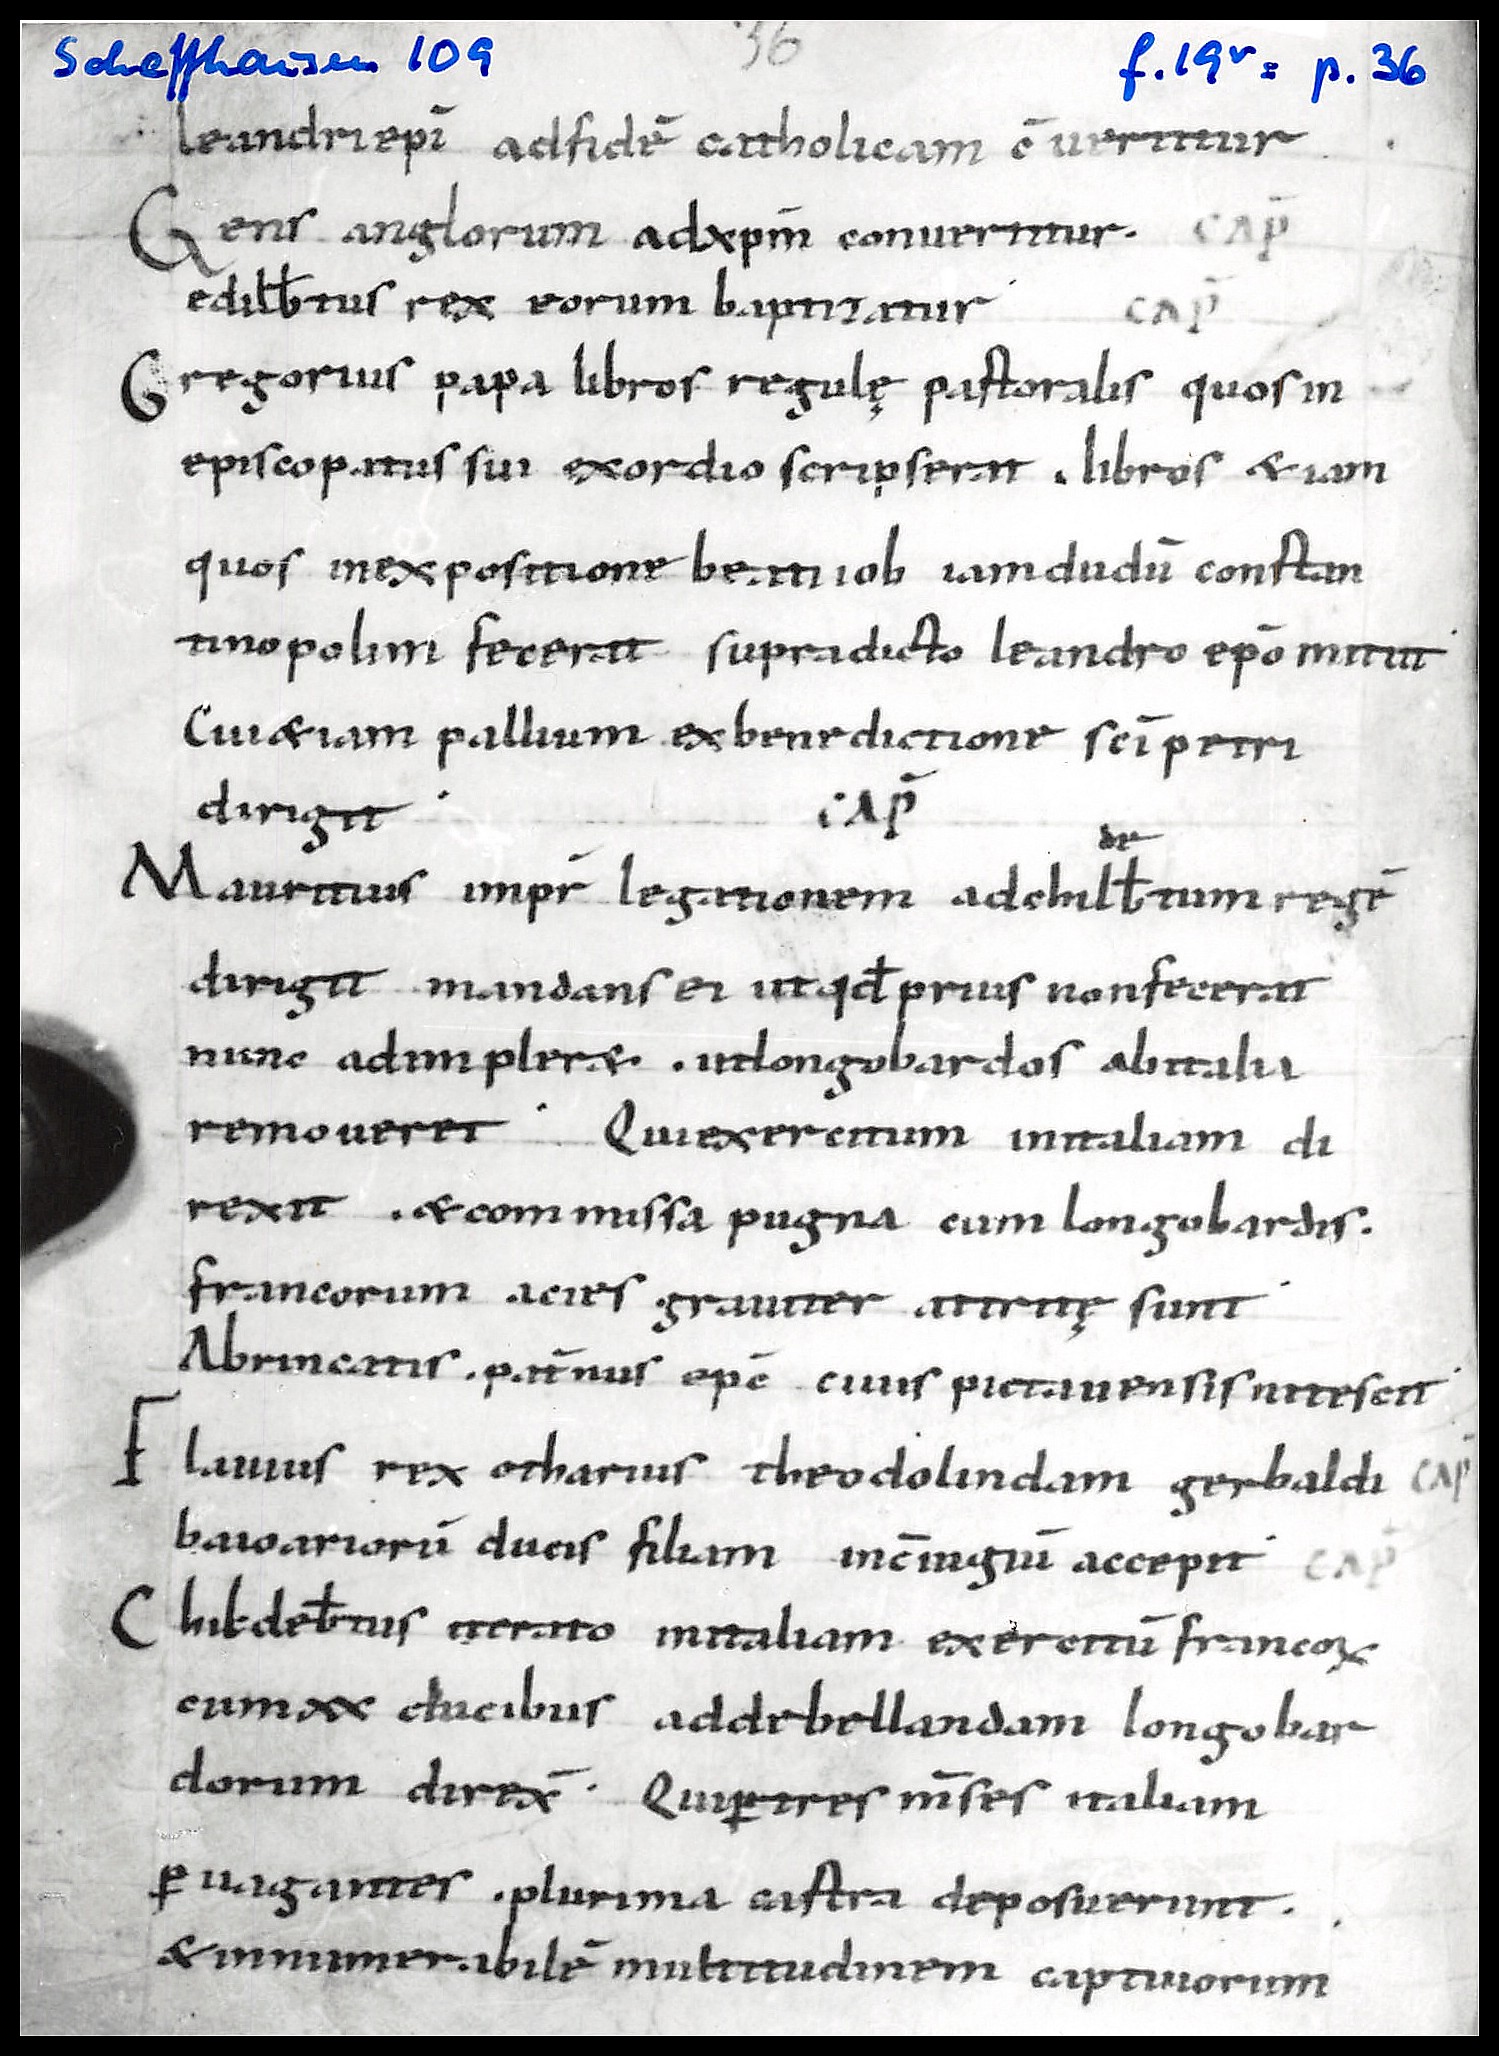 Schaffhausen 109
36
f. 19r = p. 36
leandri ep̄i ad fidē catholicam c̄uertitur
Gens anglorum ad xp̄m conuertitur. CAP̄
edilb̄tus rex eorum baptizatur CAP̄
Gregorius papa libros regulę pastoralis quos in
episcopatus sui exordio scripserat . libros &iam
quos in expositione beati iob iamdudū constan
tinopolim fecerat supradicto leandro ep̄o mittit
Cui &iam pallium ex benedictione sc̄i petri
dirigit CAP̄
de
Mauritius imp̄r legationem ad chilb̄tum regē
dirigit mandans ei ut qd̄ prius non fecerat
nunc adimpler& . ut longobardos ab italia
remoueret Qui exercitum in italiam di
rexit . & commissa pugna cum longobardis.
francorum acies grauiter attritę sunt
Abrincatis . pat̄nus ep̄c ciuis pictauensis nitescit
Flauius rex otharius theodolindam gerbaldi CAP̄
baioariorū ducis filiam in c̄iugiū accepit CAP̄
Childeb̄tus iterato in italiam exercitū francoꝝ
cum xx ducibus ad debellandam longobar
dorum direx̄ . Qui ꝑ tres m̄ses italiam
ꝑuagantes . plurima castra deposuerunt .
& innumerabilē multitudinem captiuorum